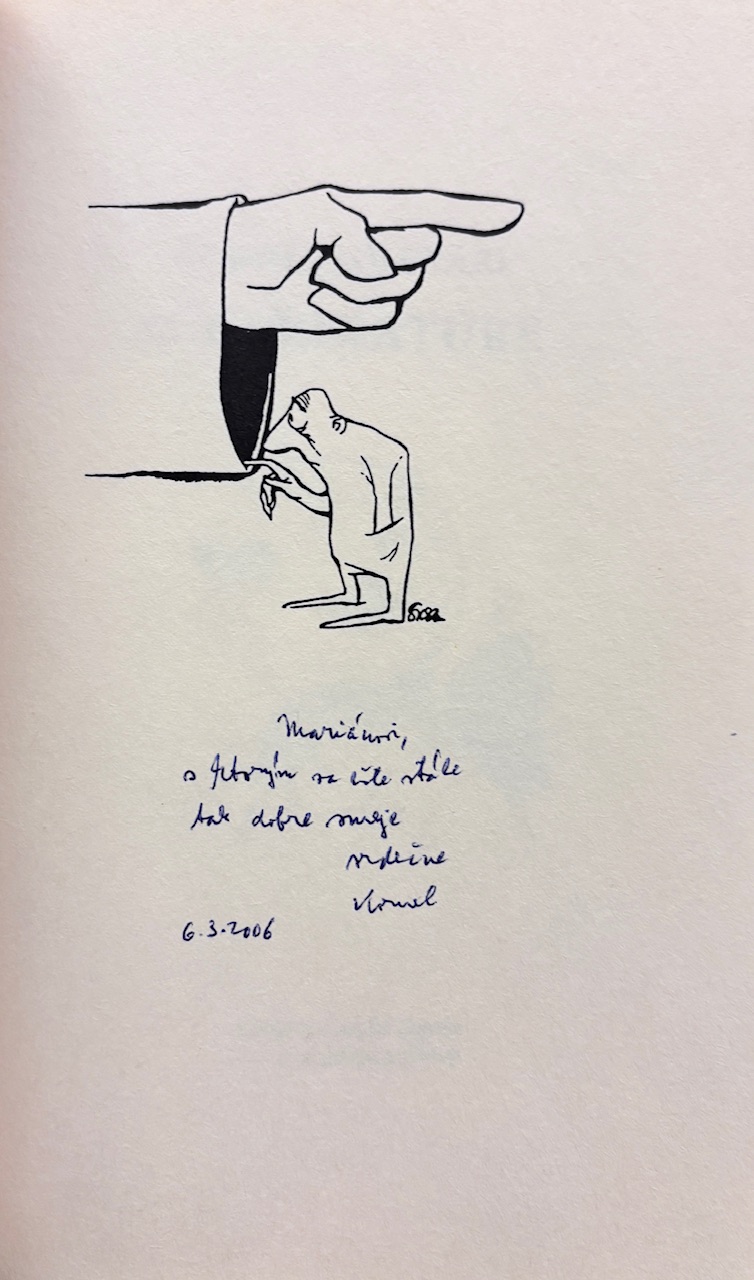 Mariánovi,
s ktorým sa ešte stále
tak dobre smeje
srdečne
Kornel
6.3.2006